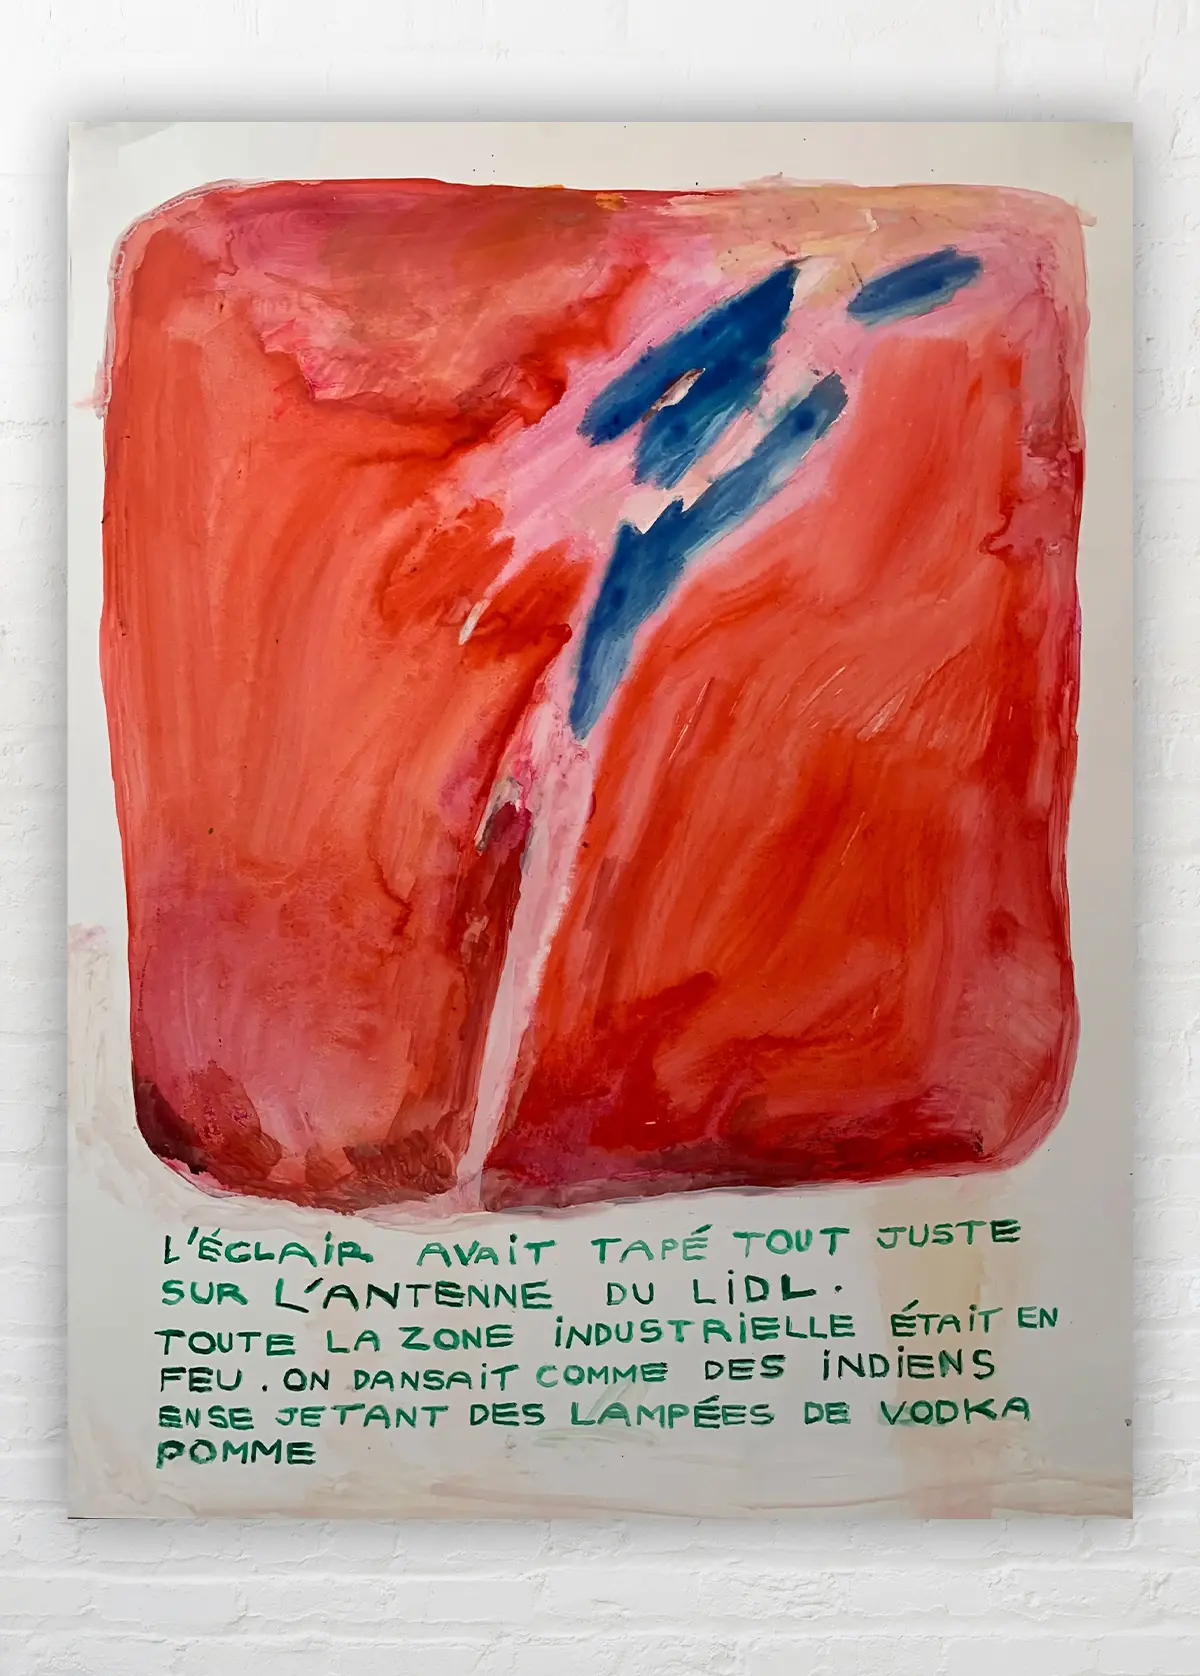 L'ÉCLAIR AVAIT TAPÉ TOUT JUSTE
SUR L'ANTENNE DU LIDL.
TOUTE LA ZONE INDUSTRIELLE ÉTAIT EN
FEU. ON DANSAIT COMME DES INDIENS
EN SE JETANT DES LAMPÉES DE VODKA
POMME